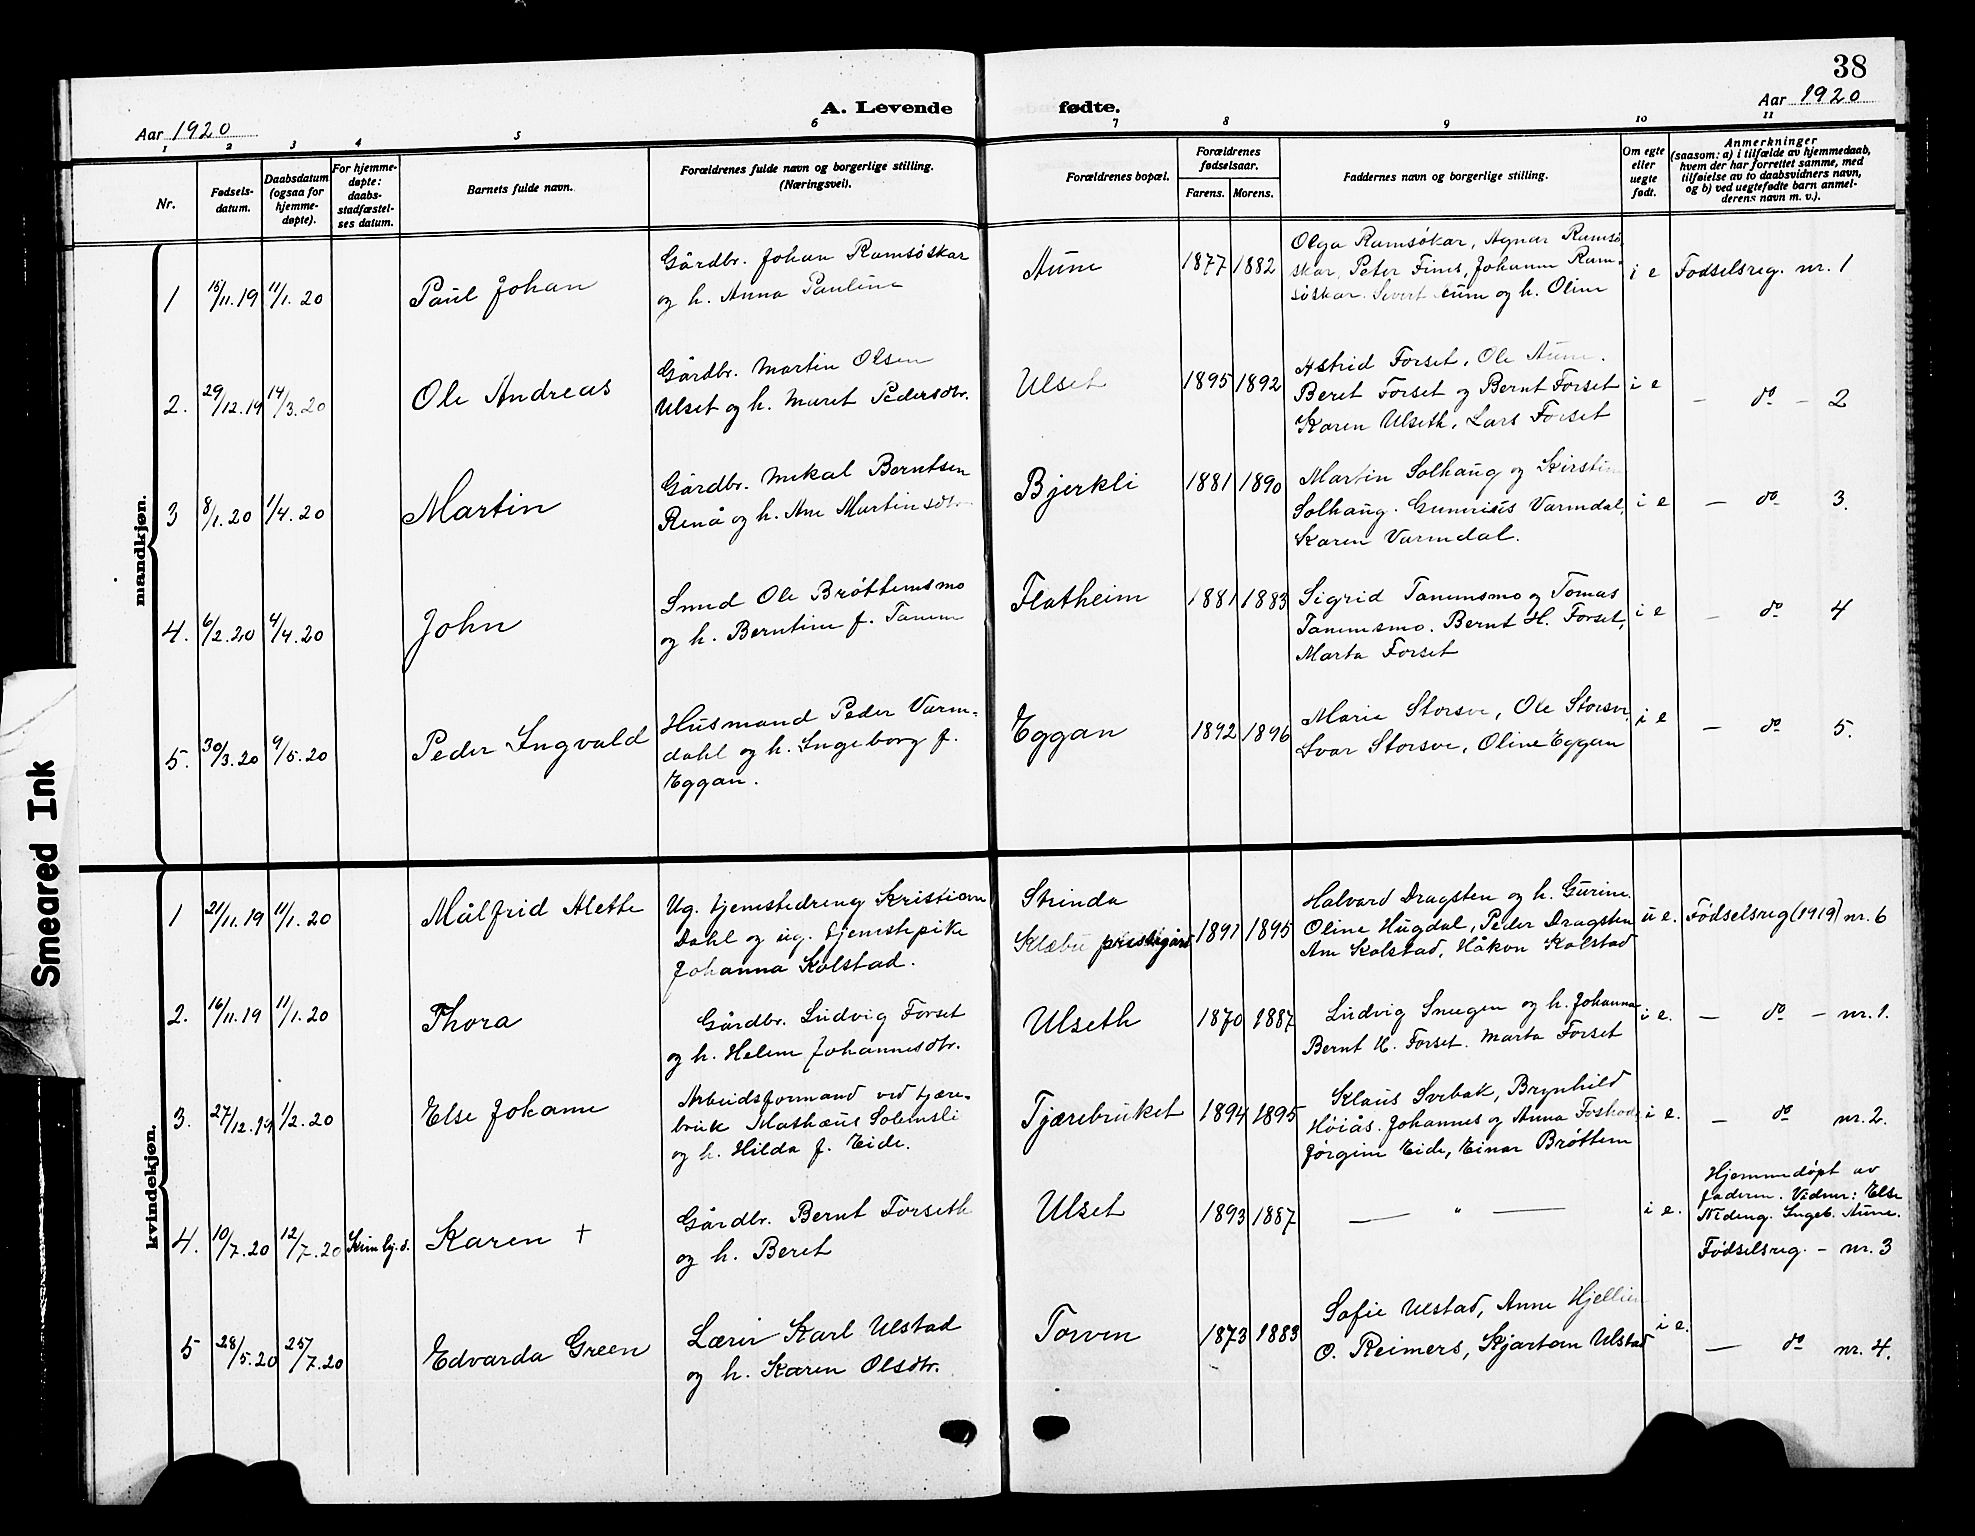 38
A. Levende fødte.
Aar 1920
Aar 1920
1 2 3 4 5 6 7 8 9 10 11
Nr.
Fødsels-
datum.
Daabsdatum
(ogsaa for
hjemme-
døpte).
For hjemme-
døpte:
daabs-
stadfæstel-
ses datum.
Barnets fulde navn.
Forældrenes fulde navn og borgerlige stilling.
(Næringsvei).
Forældrenes bopæl.
Forældrenes
fødselsaar.
Farens. Morens.
Faddernes navn og borgerlige stilling.
Om egte
eller
uegte
født.
Anmerkninger
(saasom: a) i tilfælde av hjemmedaab,
hvem der har forrettet samme, med
tilføielse av to daabsvidners navn,
og b) ved uegtefødte barn anmel-
derens navn m. v.).
mandkjøn.
1 15/11.19 11/1.20 Paul Johan
Gårdbr. Johan Ramsøskar
og h. Anna Pauline
Aune 1877 1882
Olga Ramsøskar, Agnar Ramsø-
skar, Peter Fines, Johanne Ram-
søskar. Sivert Aune og h. Oline
i e Fødselsreg. nr. 1
2. 29/12.19 14/3.20 Ole Andreas
Gårdbr. Martin Olsen
Ulset og h. Maret Pedersdtr.
Ulset 1895 1892
Astrid Forset, Ole Aune.
Beret Forset og Bernt Forset
Karen Ulseth, Lars Forset
i e – do – 2
3 8/1.20 1/4.20 Martin
Gårdbr. Mekal Berntsen
Renå og h. Ane Martinsdtr.
Bjerkli 1881 1890
Martin Solhaug og Kirstine
Solhaug. Gunerius Varmdal,
Karen Varmdal.
i e – do 3.
4. 6/2.20 4/4.20 John
Smed Ole Brøttemsmo
og h. Berntine f. Tanem
Flatheim 1881 1883
Sigrid Tanemsmo og Tomas
Tanemsmo. Bernt H. Forset,
Marta Forset
i e – do 4
5. 30/3.20 9/5.20 Peder Ingvald
Husmand Peder Varm-
dahl og h. Ingeborg f.
Eggan.
Eggan 1892 1896
Marie Storsve, Ole Storsve,
Ivar Storsve, Oline Eggan
i e – do 5.
kvindekjøn.
1 21/11.19 11/1.20 Målfrid Alette
Ug. tjenestedreng Kristian
Dahl og ug. tjenestepike
Johanna Kolstad.
Strinda
Klæbu prestegård 1891 1895
Halvard Dragsten og h. Gurine.
Oline Hugdal, Peder Dragsten
Ane Kolstad, Håkon Kolstad
u e. Fødselsreg (1919) nr. 6
2. 16/11.19 11/1.20 Thora
Gårdbr. Ludvig Forset
og h. Helene Johannesdtr.
Ulseth 1870 1887
Ludvig Sneegen og h. Johanna
Bernt H. Forset. Marta Forset
i e. – do – nr. 1.
3. 27/12.19 1/2.20 Else Johanne
Arbeidsformand ved tjære-
bruk Mathæus Solemsli
og h. Hilda f. Eide.
Tjærebruket 1894 1895
Klaus Svebak, Brynhild
Høiås. Johannes og Anna
Jørgine Eide, Einar Brøttem
i e. – do nr. 2.
4. 10/7.20 12/7.20 Karen +
Gårdbr. Bernt Forseth
og h. Beret
Ulset 1893 1887
— " —
i e.
Hjemmedøpt av
faderen. Vidner: Else
Nideng. Ingeb. Aune.
Fødselsreg. – nr. 3
5 28/5.20 25/7.20 Edvarda Green
Lærer Karl Ulstad
og h. Karen Olsdtr.
Torven 1873 1883
Sofie Ulstad, Anne Hjellien
O. Reimers, Kjartan Ulstad
i e. – do nr. 4.
Smeared Ink